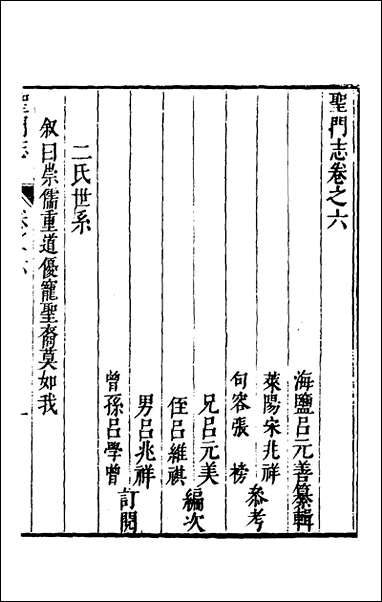 聖門志卷之六
海鹽呂元善纂輯
萊陽宋兆祥
句容張 榜
參考
兄呂元美
侄呂維祺
編次
男呂兆祥
曾孫呂學曾
訂閱
二氏世系
叙曰崇儒重道優寵聖裔莫如我